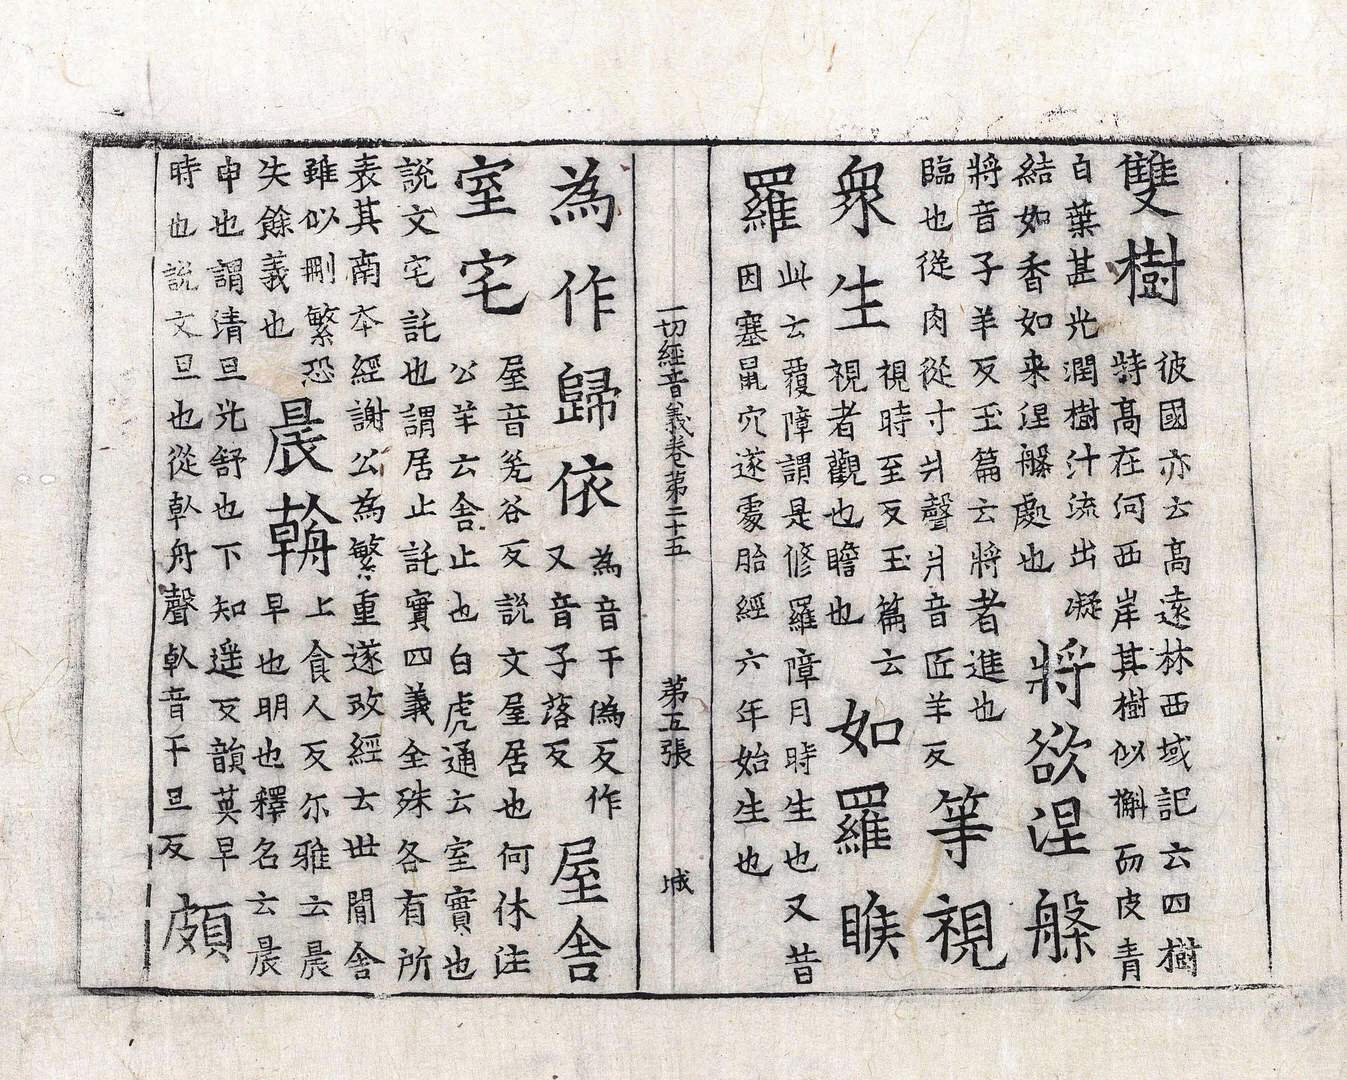 雙樹彼國亦云高遠林西域記云四樹
特高在何西岸其樹似槲而皮青
白葉甚光潤樹汁流出凝
結如香如来涅槃處也將欲涅槃
將音子羊反玉篇云將者進也
臨也從肉從寸爿聲爿音匠羊反等視
衆生視時至反玉篇云
視者觀也瞻也如羅睺
羅此云覆障謂是修羅障月時生也又昔
因塞鼠穴遂處胎經六年始生也
一切經音義卷第二十五 第五張 城
為作歸依為音干偽反作
又音子落反屋舍
屋音兂谷反説文屋居也何休注
室宅公羊云舍止也白虎通云室實也
説文宅託也謂居止託實四義全殊各有所
表其南夲經謝公為繁重遂改經云世間舍
雖似刪繁恐
失餘義也晨朝上食人反尔雅云晨
早也明也釋名云晨
申也謂清旦光舒也下知遥反韻英早
時也説文旦也從倝舟聲倝音干旦反頗